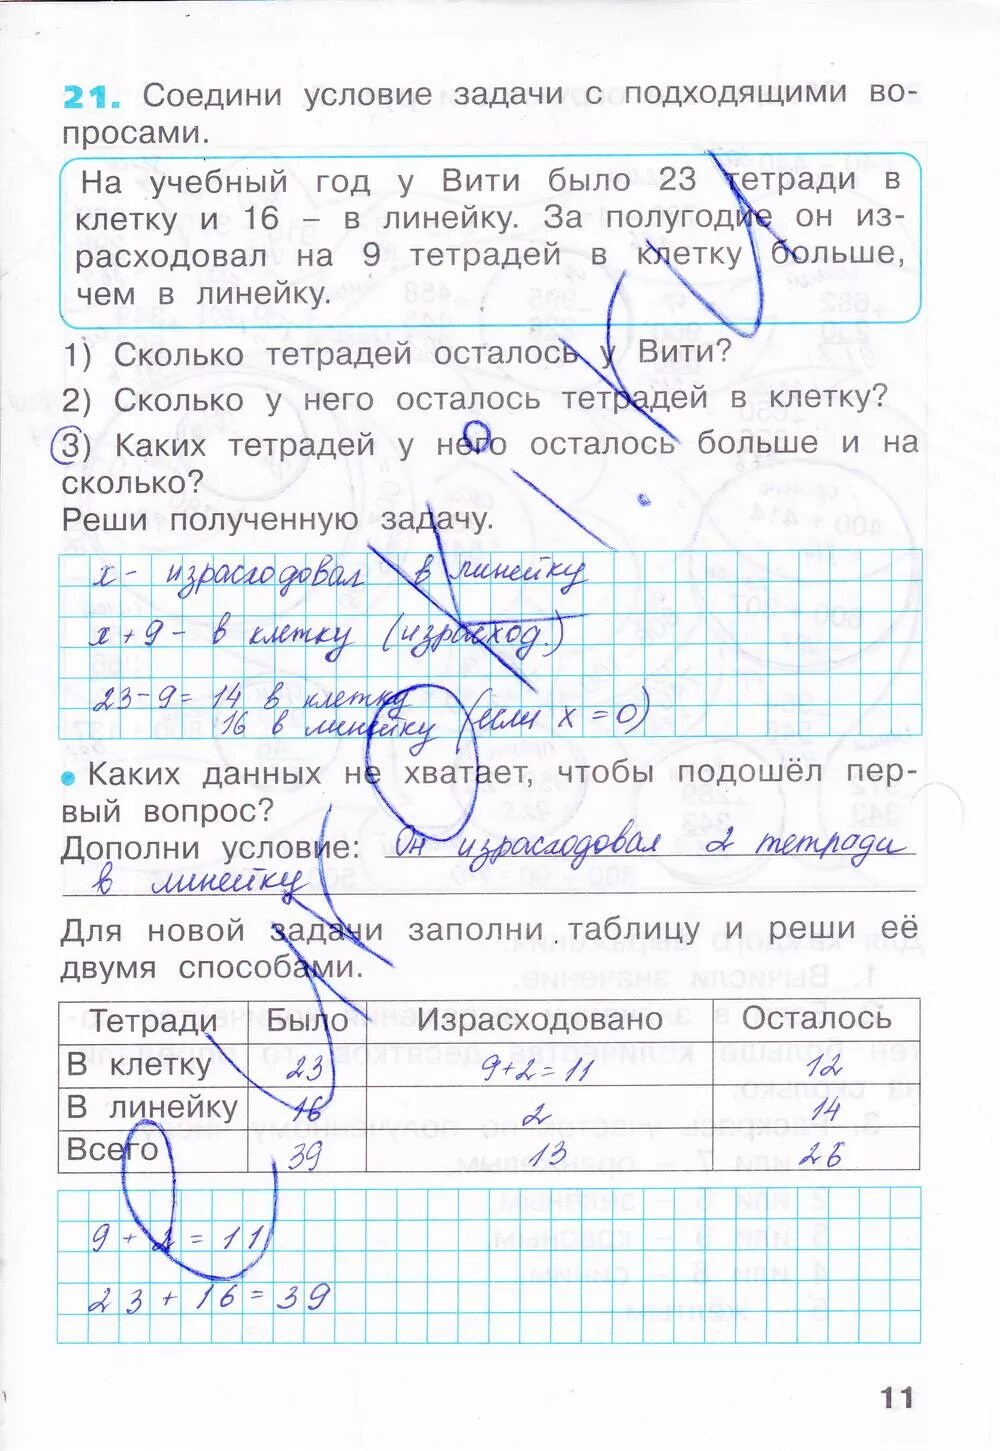 21. Соедини условие задачи с подходящими во-
просами.
На учебный год у Вити было 23 тетради в
клетку и 16 – в линейку. За полугодие он из-
расходовал на 9 тетрадей в клетку больше,
чем в линейку.
1) Сколько тетрадей осталось у Вити?
2) Сколько у него осталось тетрадей в клетку?
3) Каких тетрадей у него осталось больше и на
сколько?
Реши полученную задачу.
х - израсходовал в линейку
х + 9 - в клетку (израсход.)
23 - 9 = 14 в клетку
16 в линейку (если х = 0)
• Каких данных не хватает, чтобы подошёл пер-
вый вопрос?
Дополни условие: Он израсходовал 2 тетради
в линейку
Для новой задачи заполни таблицу и реши её
двумя способами.
Тетради Было Израсходовано Осталось
В клетку 23 9+2=11 12
В линейку 16 2 14
Всего 39 13 26
9 + 2 = 11
23 + 16 = 39
11